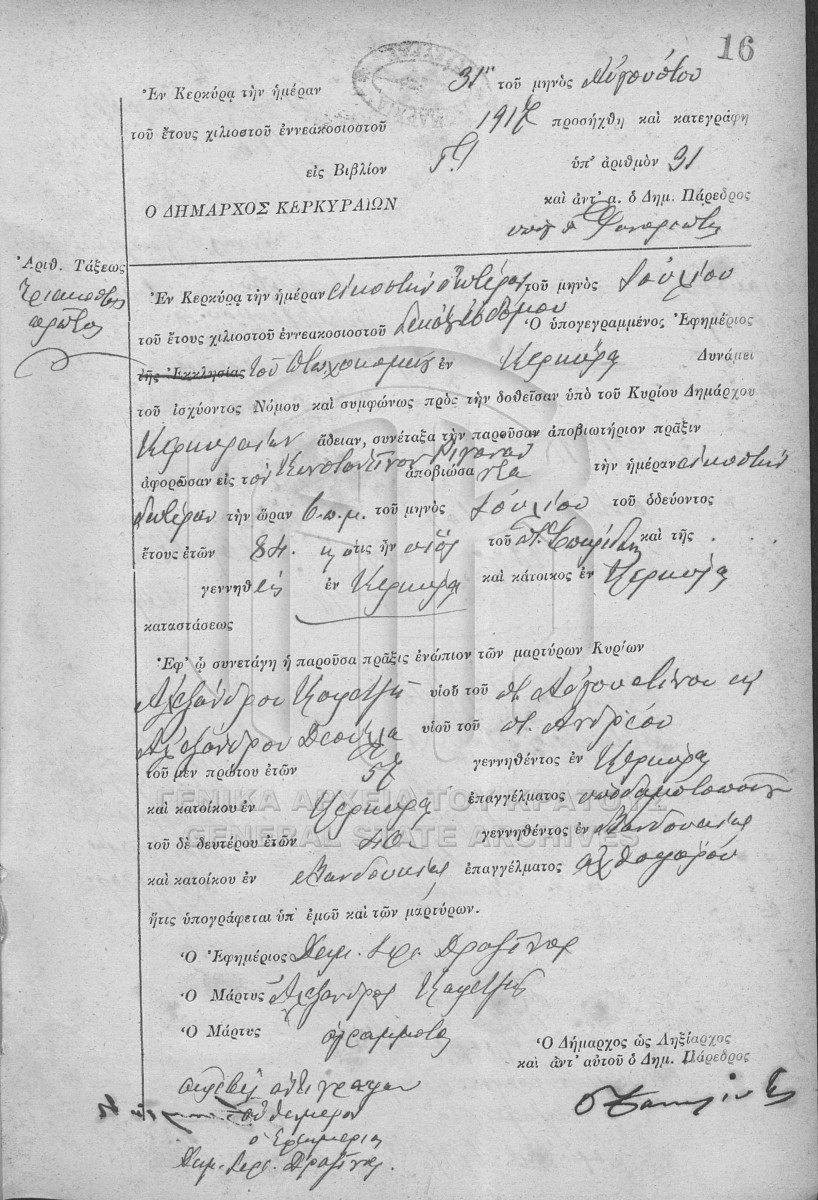 16
Ἐν Κερκύρᾳ τὴν ἡμέραν 31ην τοῦ μηνὸς Αὐγούστου
τοῦ ἔτους χιλιοστοῦ ἐννεακοσιοστοῦ 1917 προσήχθη καὶ κατεγράφη
εἰς Βιβλίον Γ' ὑπ' ἀριθμὸν 31
Ο ΔΗΜΑΡΧΟΣ ΚΕΡΚΥΡΑΙΩΝ καὶ ἀντ' α. ὁ Δημ. Πάρεδρος
Ἀριθ. Τάξεως
Τριακοστὸς
πρῶτος
Ἐν Κερκύρᾳ τὴν ἡμέραν εἰκοστὴν δευτέραν τοῦ μηνὸς Ἰουλίου
τοῦ ἔτους χιλιοστοῦ ἐννεακοσιοστοῦ δεκάτου ἑβδόμου Ὁ ὑπογεγραμμένος Ἐφημέριος
τῆς Ἐκκλησίας τοῦ Πτωχοκομείου ἐν Κερκύρᾳ Δυνάμει
τοῦ ἰσχύοντος Νόμου καὶ συμφώνως πρὸς τὴν δοθεῖσαν ὑπὸ τοῦ Κυρίου Δημάρχου
Κερκυραίων ἄδειαν, συνέταξα τὴν παροῦσαν ἀποβιωτήριον πρᾶξιν
ἀφορῶσαν εἰς τὸν Κωνσταντῖνον ἀποβιώσαντα τὴν ἡμέραν εἰκοστὴν
δευτέραν τὴν ὥραν 6 π.μ. τοῦ μηνὸς Ἰουλίου τοῦ ὁδεύοντος
ἔτους ἐτῶν 84. ὅστις ἦν υἱὸς τοῦ π. Σπυρίδωνος καὶ τῆς .
γεννηθεὶς ἐν Κερκύρᾳ καὶ κάτοικος ἐν Κερκύρᾳ
καταστάσεως
Ἐφ' ᾧ συνετάγη ἡ παροῦσα πρᾶξις ἐνώπιον τῶν μαρτύρων Κυρίων
Ἀλεξάνδρου υἱοῦ τοῦ π. Αὐγουστίνου καὶ
Ἀλεξάνδρου υἱοῦ τοῦ π. Ἀνδρέου
τοῦ μὲν πρώτου ἐτῶν 57 γεννηθέντος ἐν Κερκύρᾳ
καὶ κατοίκου ἐν Κερκύρᾳ ἐπαγγέλματος ὑποδηματοποιοῦ
τοῦ δὲ δευτέρου ἐτῶν 40 γεννηθέντος ἐν Μανδουκίῳ
καὶ κατοίκου ἐν Μανδουκίῳ ἐπαγγέλματος ἀχθοφόρου
ἥτις ὑπογράφεται ὑπ' ἐμοῦ καὶ τῶν μαρτύρων.
Ὁ Ἐφημέριος
Ὁ Μάρτυς Ἀλέξανδρος
Ὁ Μάρτυς ἀγράμματος
Ὁ Δήμαρχος ὡς Ληξίαρχος
καὶ ἀντ' αὐτοῦ ὁ Δημ. Πάρεδρος
ἀκριβὲς ἀντίγραφον
αὐθημερόν
ὁ Ἐφημέριος
ΓΕΝΙΚΑ ΑΡΧΕΙΑ ΤΟΥ ΚΡΑΤΟΥΣ
GENERAL STATE ARCHIVES